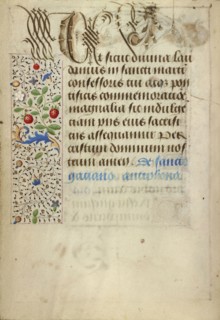 Et sicut divina lau
damus in sancti marti
confessoris tui atqȝ pon
tificis commemoratione
magnalia sic indulgen
tiam piis eius preci
bus assequamur Per
cristum dominum nos
trum amen. De sancto
gaciano antiphona